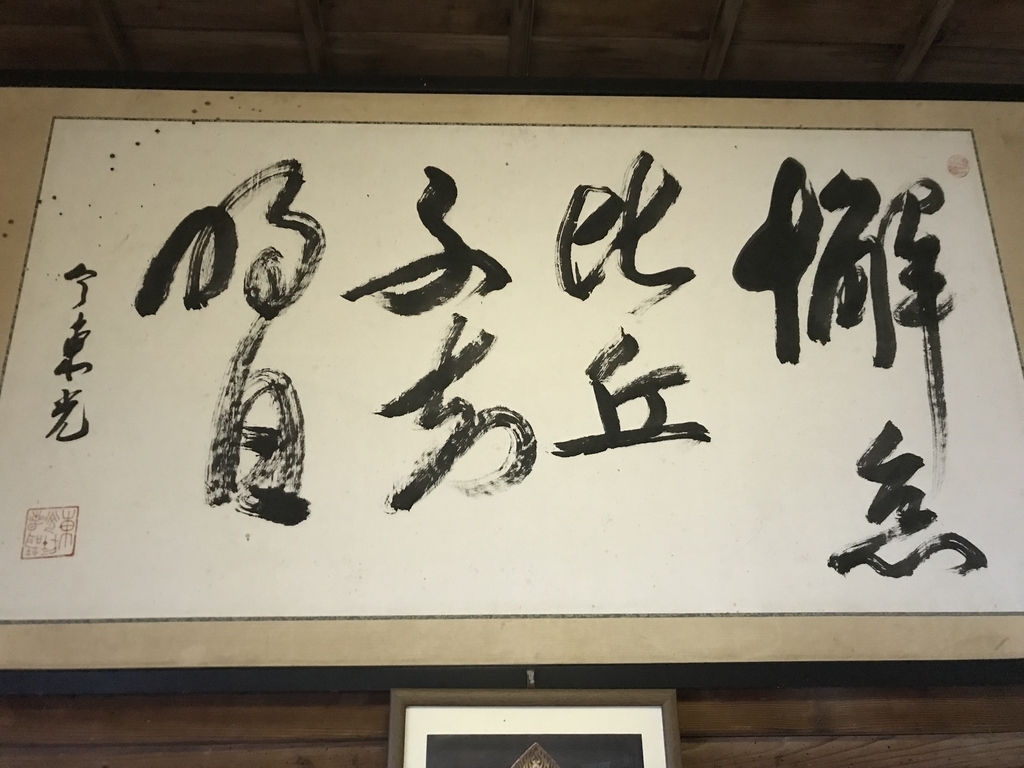 懈怠
比丘
不期
明日
今東光